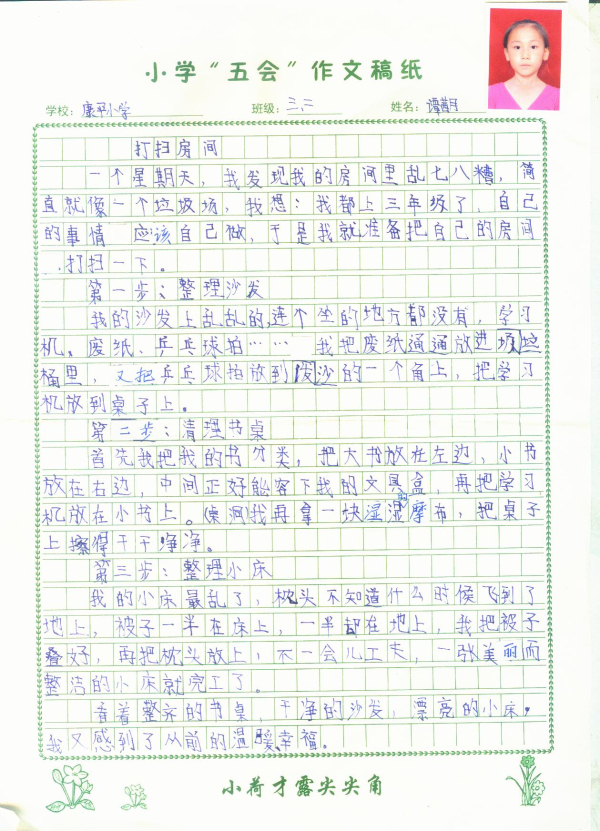 小学“五会”作文稿纸
学校：康平小学 班级：三、二 姓名：谭
打扫房间
一个星期天，我发现我的房间里乱七八糟，简
直就像一个垃圾场，我想：我都上三年级了，自己
的事情 应该自己做，于是我就准备把自己的房间
打扫一下。
第一步：整理沙发
我的沙发上乱乱的，连个坐的地方都没有，学习
机、废纸、乒乓球拍…… 我把废纸通通放进圾垃
桶里，又把乒乓球拍放到废沙的一个角上，把学习
机放到桌子上。
第二步：清理书桌
首先我把我的书分类，把大书放在左边、小书
放在右边 中间正好能容下我的文具盒，再把学习
机放在小书上。我再拿一块湿湿的摩布，把桌子
上擦得干干净净。
第三步：整理小床
我的小床最乱了，枕头不知道什么时候飞到了
地上，被子一半在床上，一半却在地上，我把被子
叠好，再把枕头放上，不一会儿工夫，一张美丽而
整洁的小床就完工了。
看着整齐的书桌，干净的沙发，漂亮的小床，
我又感到了从前的温暖、幸福。
小荷才露尖尖角